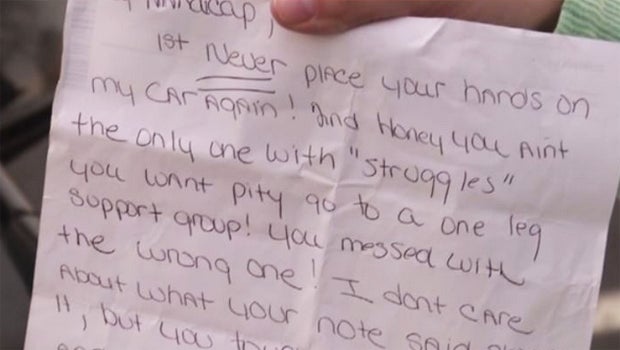 Handicap,
1st Never place your hands on
my car again! 2nd Honey you aint
the only one with "struggles"
you want pity go to a one leg
support group! You messed with
the wrong one! I dont care
about what your note said
it, but you